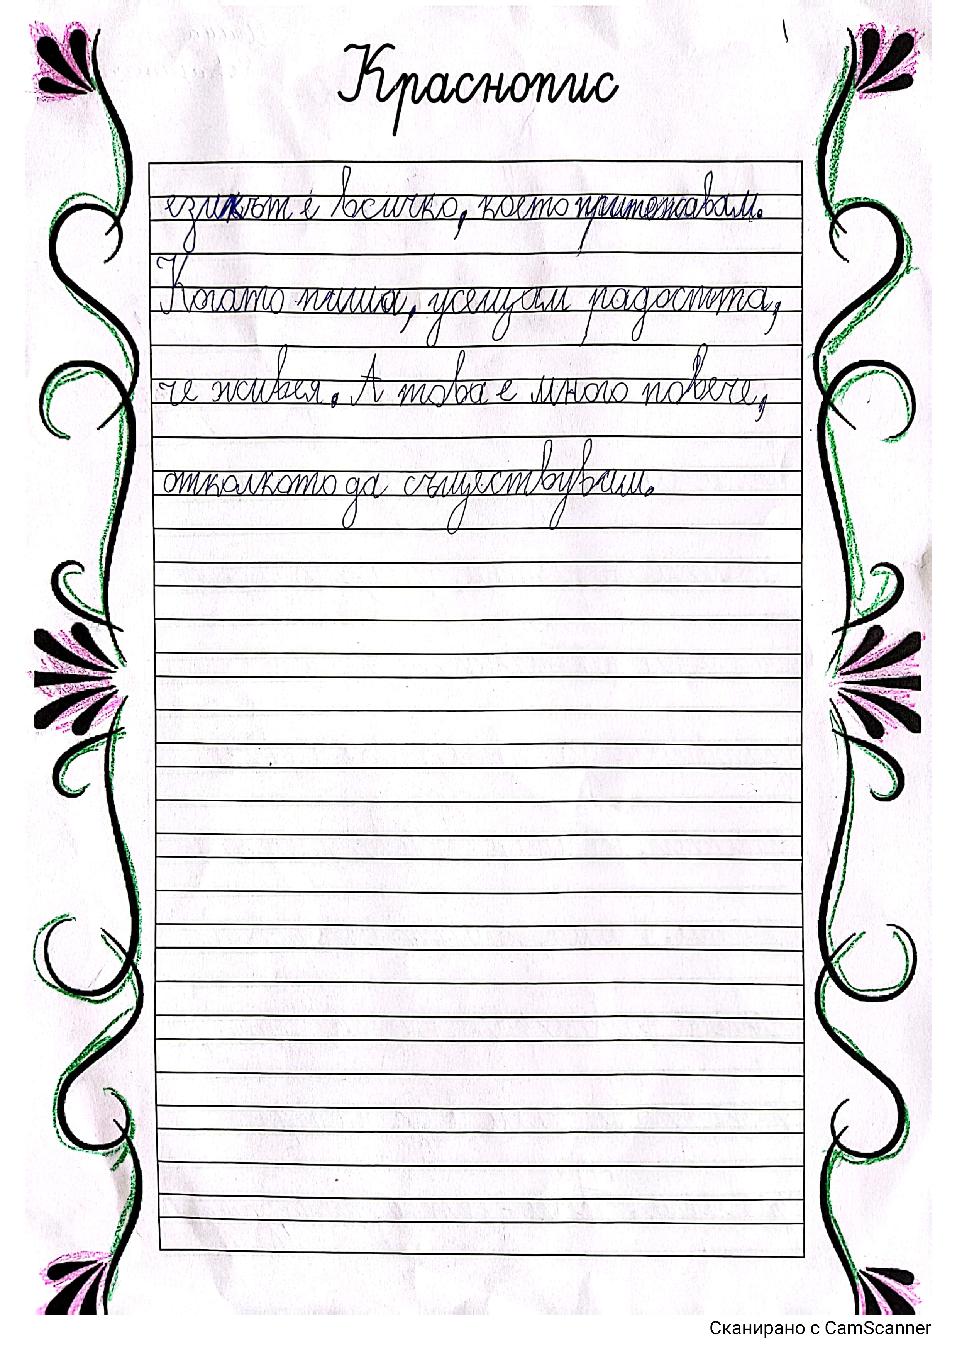 Краснопис
езикът е всичко, което притежавам.
Когато пиша, усещам радостта,
че живея. А това е много повече,
отколкото да съществувам.
Сканирано с CamScanner